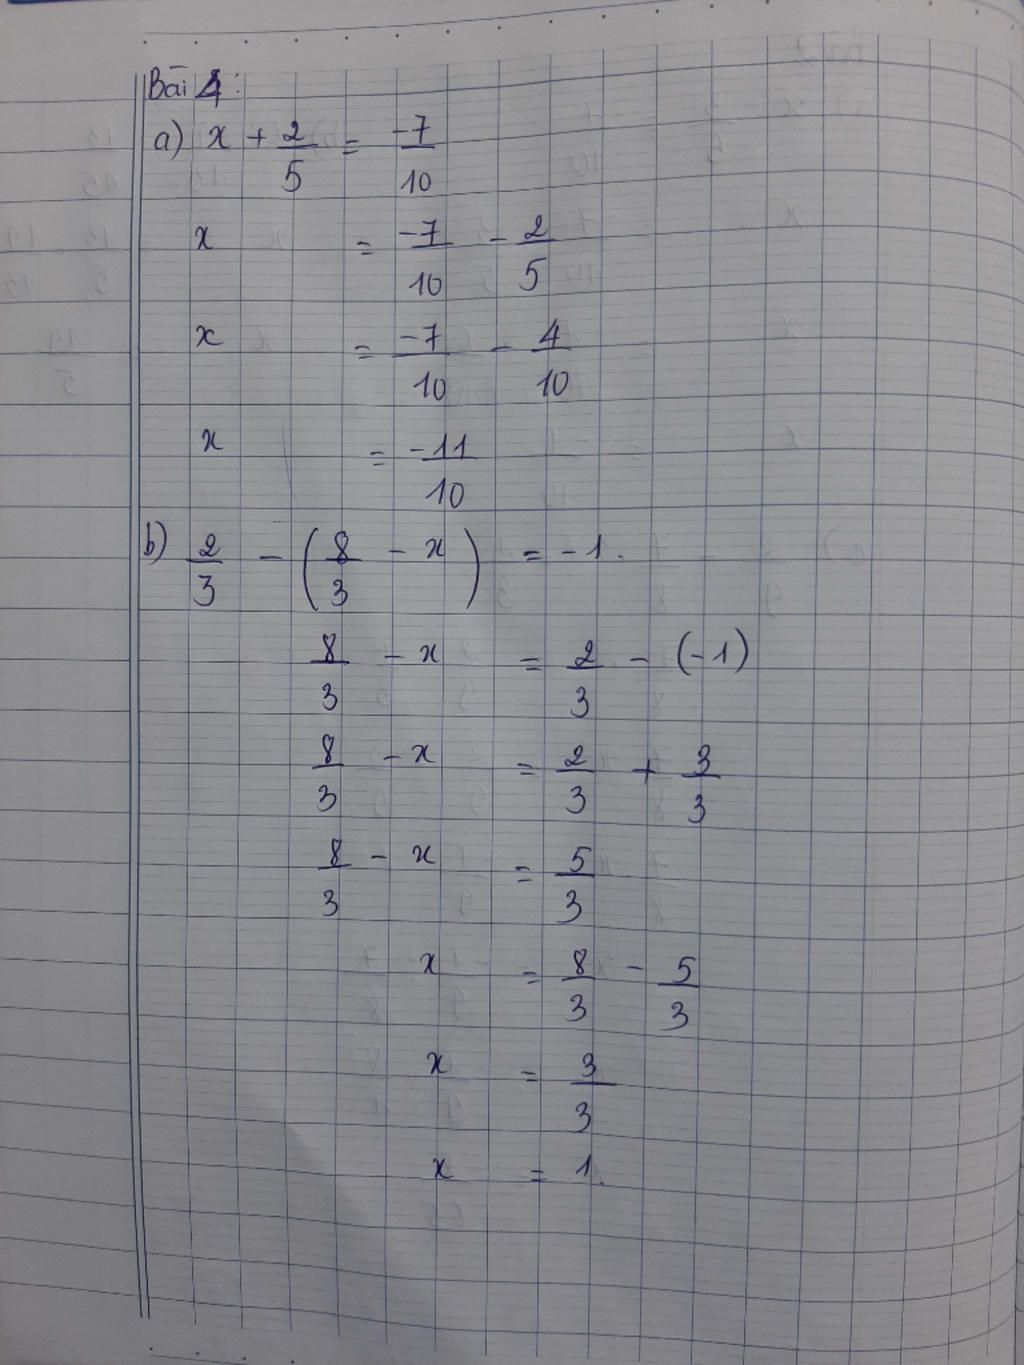 Bài 4:
a) x + 2/5 = -7/10
x = -7/10 - 2/5
x = -7/10 - 4/10
x = -11/10
b) 2/3 - (8/3 - x) = -1.
8/3 - x = 2/3 - (-1)
8/3 - x = 2/3 + 3/3
8/3 - x = 5/3
x = 8/3 - 5/3
x = 3/3
x = 1.